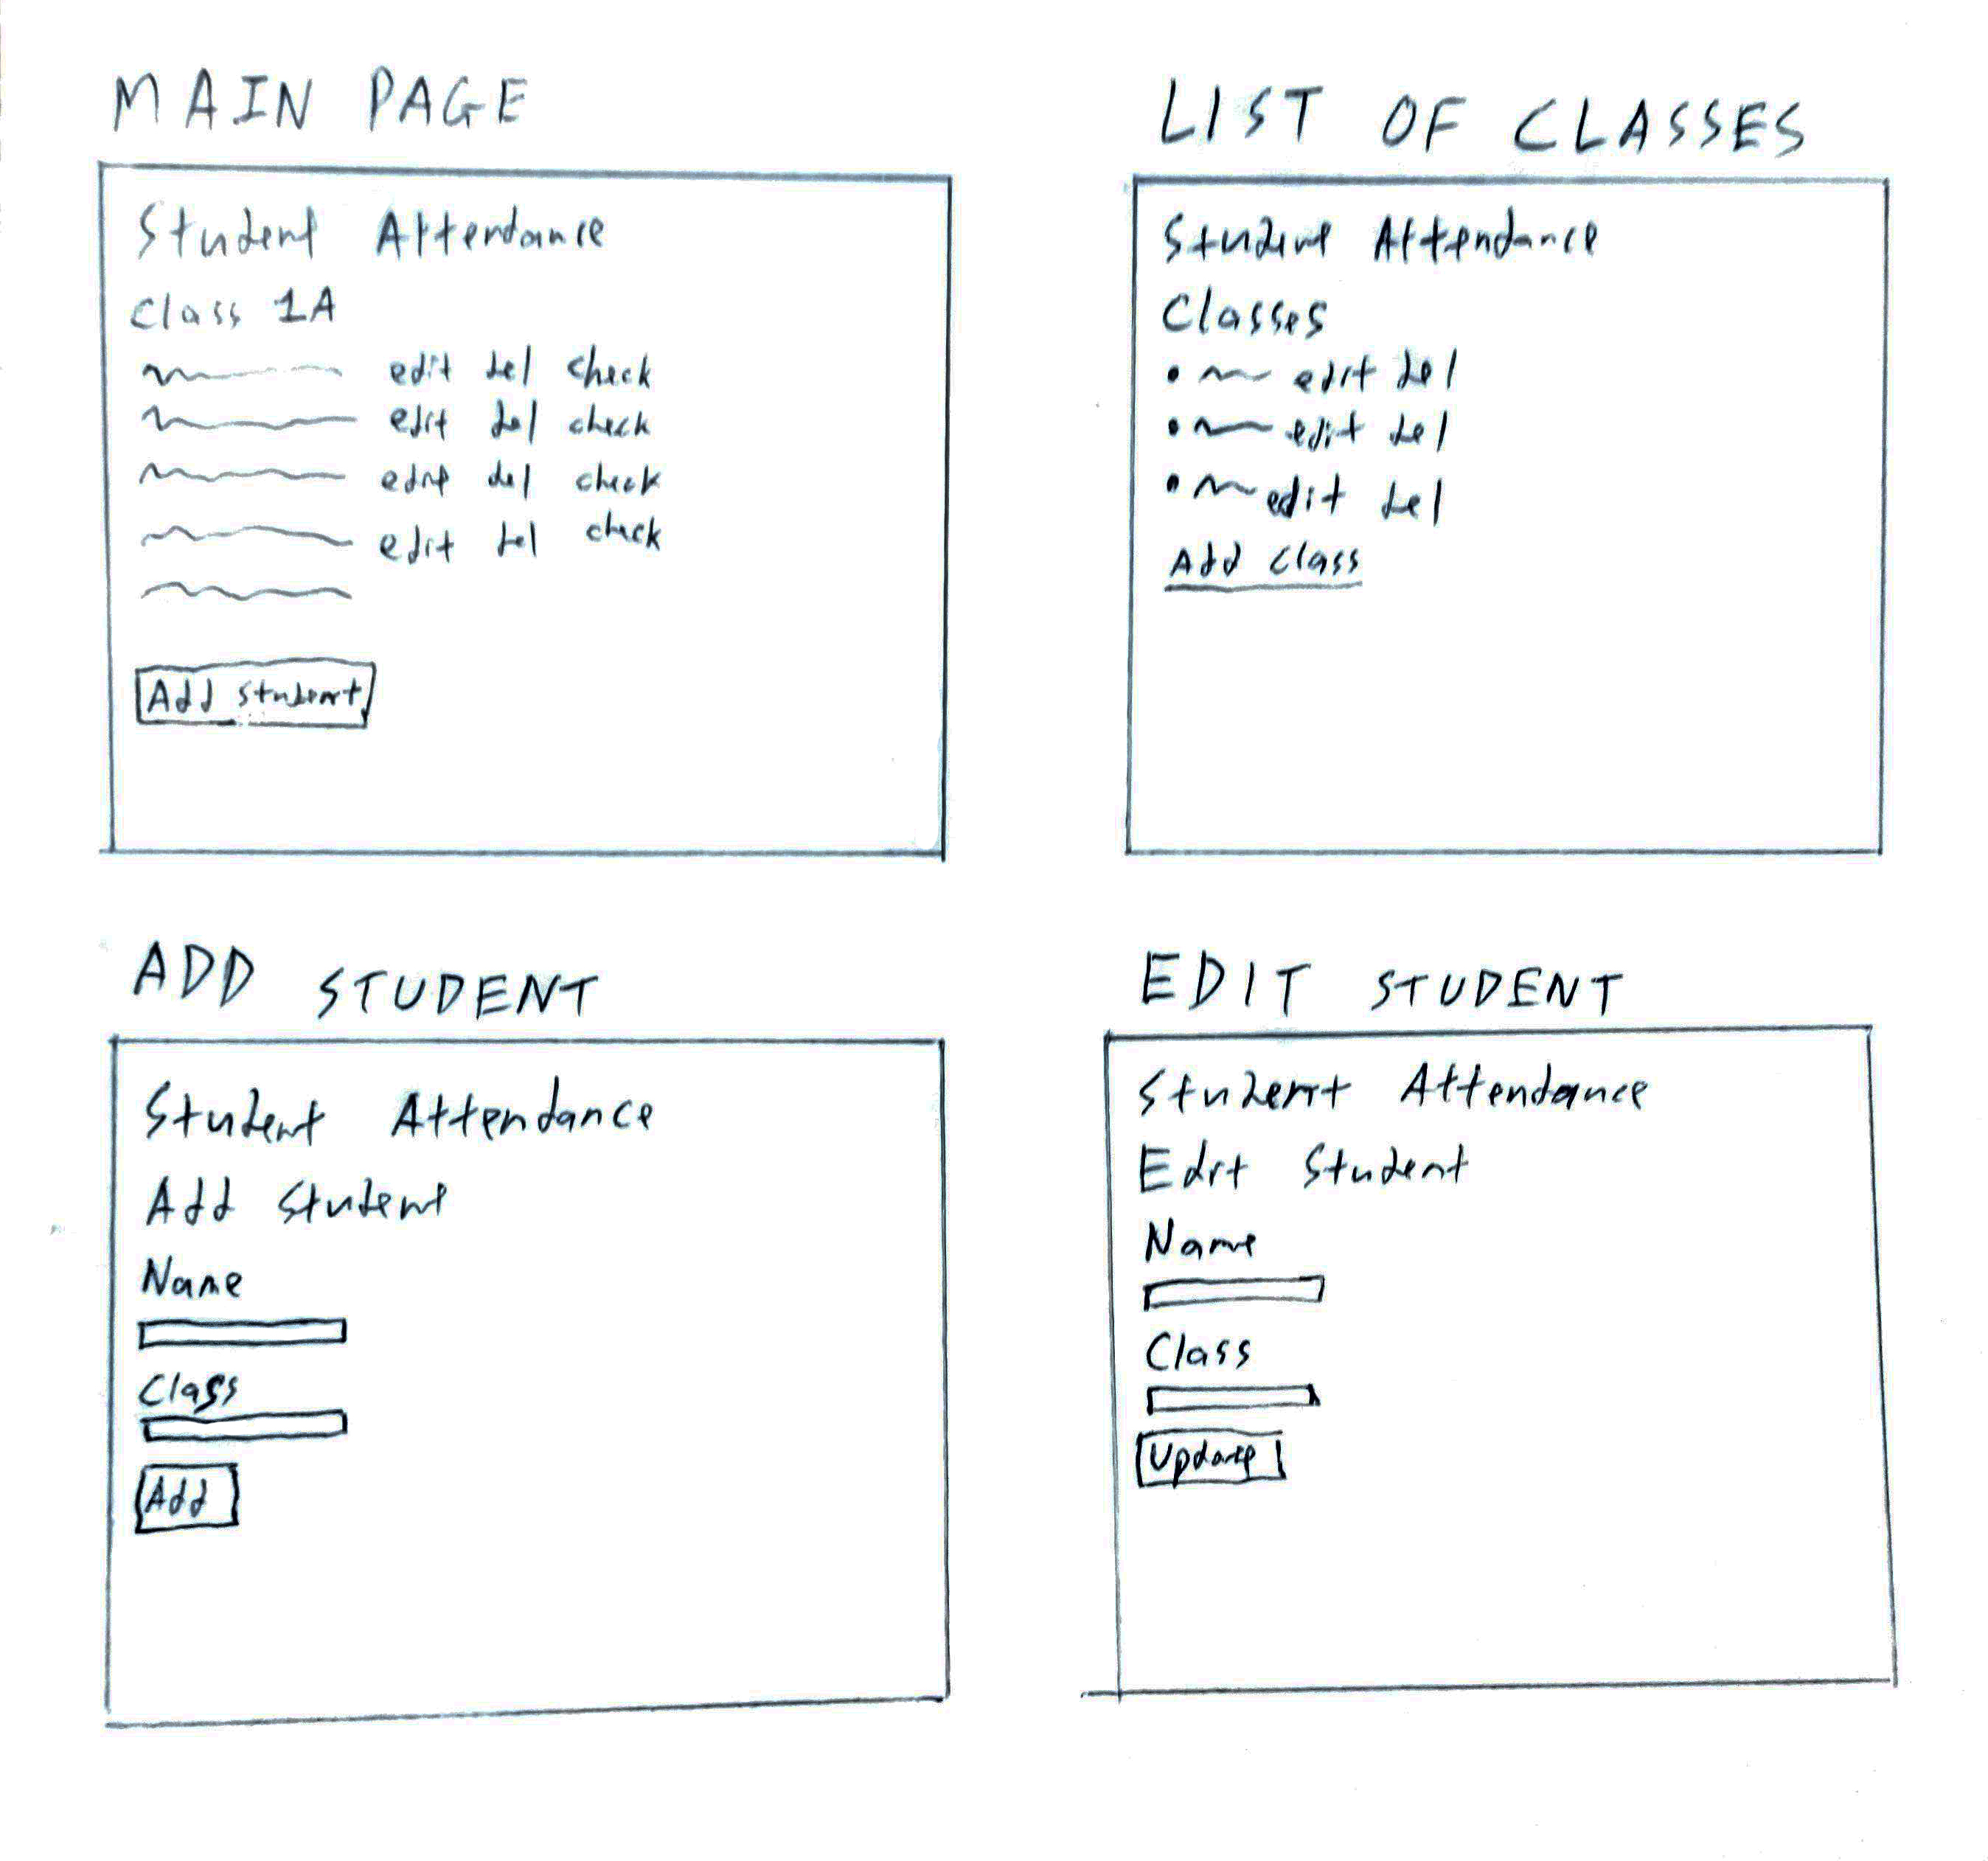 MAIN PAGE
Student Attendance
Class 1A
edit del check
edit del check
edit del check
edit del check
Add student
LIST OF CLASSES
Student Attendance
Classes
• edit del
• edit del
• edit del
Add Class
ADD STUDENT
Student Attendance
Add Student
Name
Class
Add
EDIT STUDENT
Student Attendance
Edit Student
Name
Class
Update